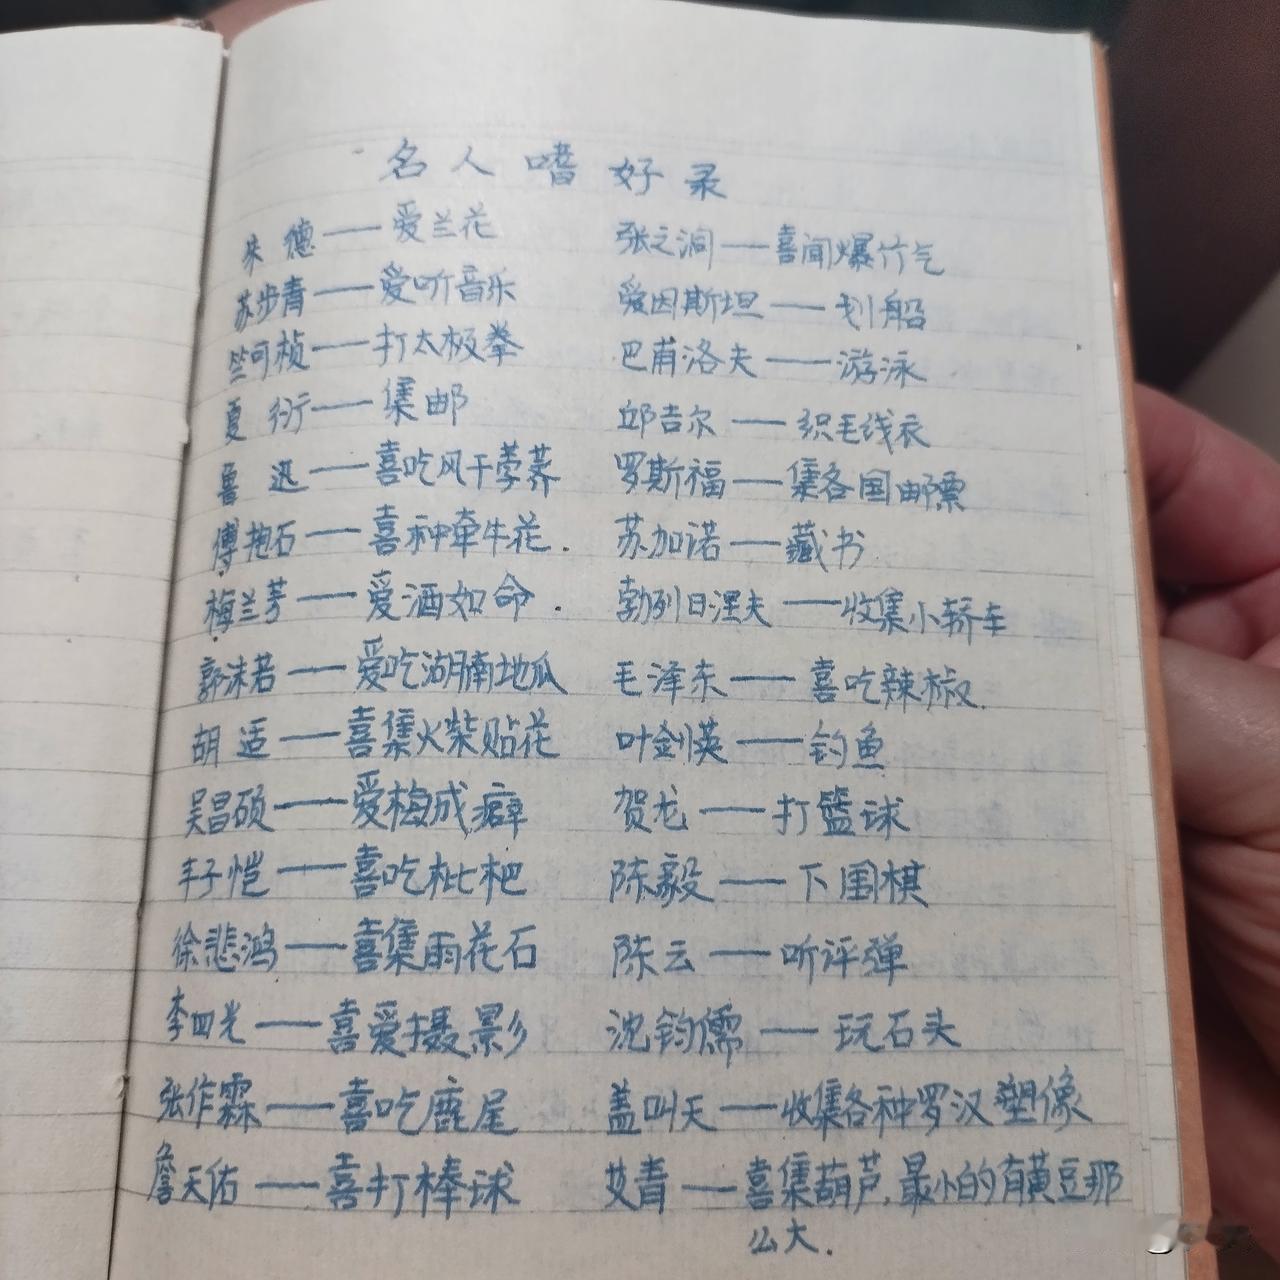 名人嗜好录
朱德——爱兰花
苏步青——爱听音乐
竺可桢——打太极拳
夏衍——集邮
鲁迅——喜吃风干荸荠
傅抱石——喜种牵牛花.
梅兰芳——爱酒如命.
郭沫若——爱吃湖南地瓜
胡适——喜集火柴贴花
吴昌硕——爱梅成癖
丰子恺——喜吃枇杷
徐悲鸿——喜集雨花石
李四光——喜爱摄影
张作霖——喜吃鹿尾
詹天佑——喜打棒球
张之洞——喜闻爆竹气
爱因斯坦——划船
巴甫洛夫——游泳
邱吉尔——织毛线衣
罗斯福——集各国邮票
苏加诺——藏书
勃列日涅夫——收集小轿车
毛泽东——喜吃辣椒.
叶剑英——钓鱼
贺龙——打篮球
陈毅——下围棋
陈云——听评弹
沈钧儒——玩石头
盖叫天——收集各种罗汉塑像
艾青——喜集葫芦,最小的有黄豆那
么大.